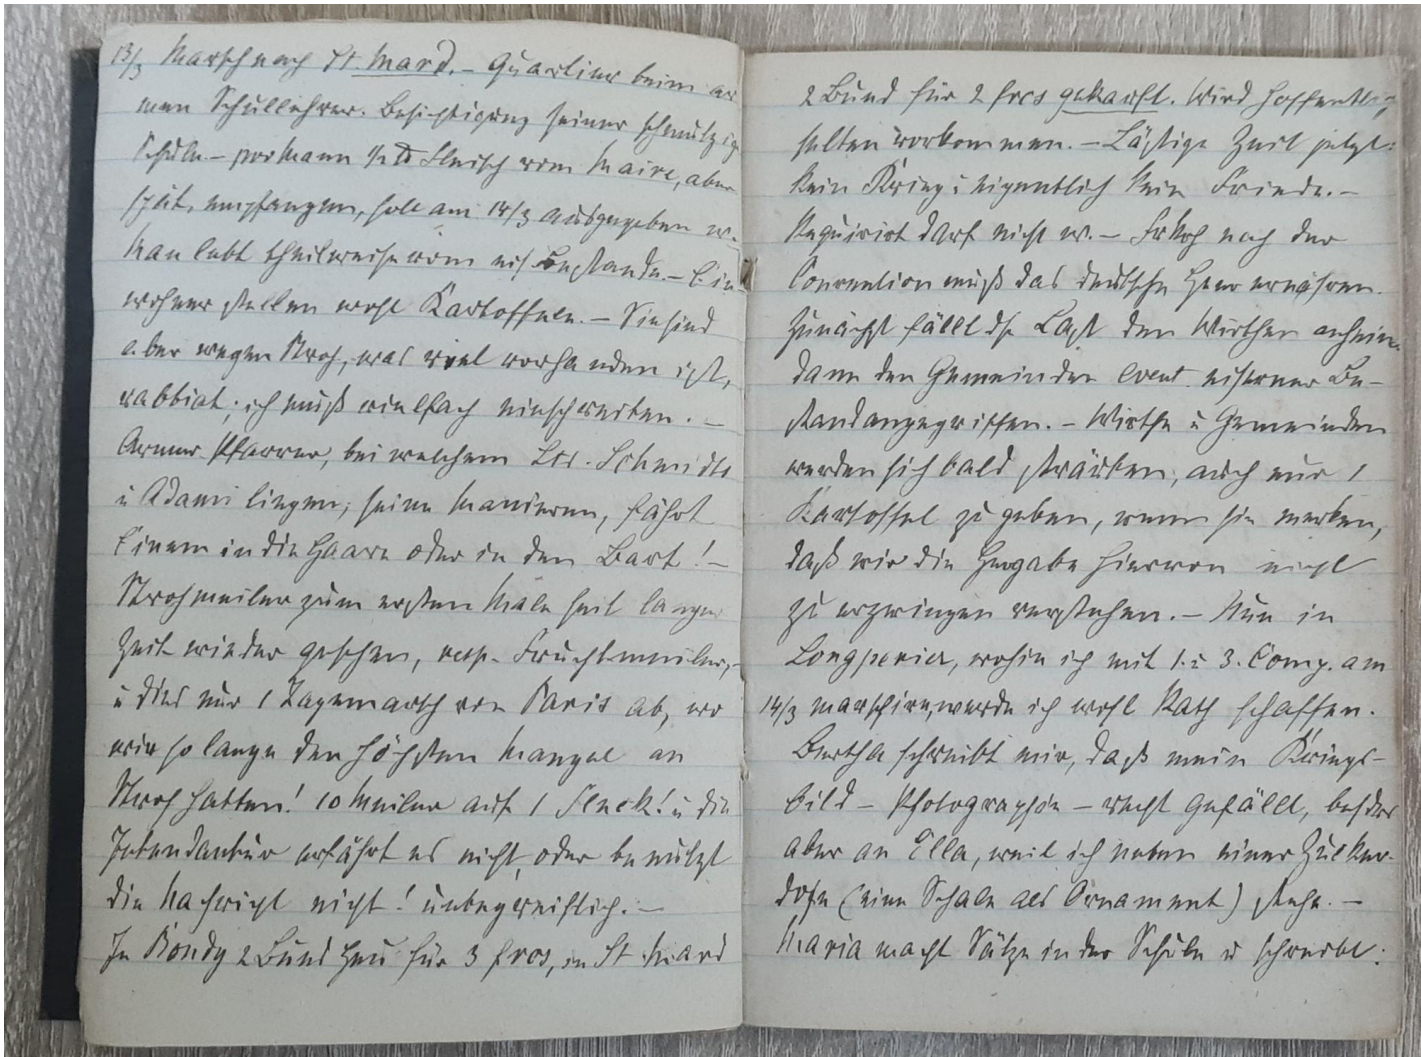 13/3 Marsch nach St. Mard. – Quartier beim ar
men Schullehrer. Besichtigung seiner schmutzigen
Schule – pro Mann ½ ℔ Fleisch vom Maire, aber
spät, empfangen, soll am 14/3 ausgegeben w.
Man lebt theilweise vom eis. Bestande. – Ein
wohner stellen wohl Kartoffeln. – Sie sind
aber wegen Stroh, was viel vorhanden ist,
rabbiat; ich muß vielfach einschreiten. –
Armer Pfarrer, bei welchem Lts. Schmidts
u Adami liegen; seine Manieren, fährt
Einem in die Haare oder in den Bart! –
Strohmeiler zum ersten Male seit langer
Zeit wieder gesehen, resp. Fruchtmeiler,
u dies nur 1 Tagemarsch von Paris ab, wo
wir so lange den höchsten Mangel an
Stroh hatten! 10 Meiler auf 1 Fleck! u die
Intendantur erfährt es nicht, oder benutzt
die Nachricht nicht! unbegreiflich. –
In Bondy 2 Bund Heu für 3 frcs, in St Mard
2 Bund für 2 frcs gekauft. Wird hoffentlich
selten vorkommen. – Lästige Zeit jetzt:
kein Krieg u eigentlich kein Friede. –
Requirirt darf nicht w. – Frkrch nach der
Convention muß das deutsche Heer ernähren.
Zunächst fällt dse Last den Wirthen anheim
dann den Gemeinden event. eiserner Be-
stand angegriffen. – Wirthe u Gemeinden
werden sich bald sträuben, auch nur 1
Kartoffel zu geben, wenn sie merken,
daß wir die Hergabe hiervon nicht
zu erzwingen verstehen. – Nun in
Longperier, wohin ich mit 1. u 3. Comp. am
14/3 marschire, werde ich wohl Rath schaffen.
Bertha schreibt mir, daß mein Kriegs-
bild – Photographie – recht gefällt, besders
aber an Ella, weil ich neben einer Zucker-
dose (eine Schale als Ornament) stehe. –
Maria macht Sätze in der Schule u schreibt: